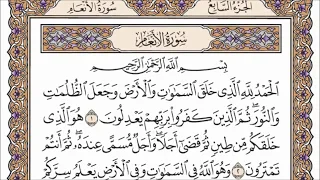 الجزء السابع
سورة الأنعام
سُورَةُ الأَنْعَامِ
بِسْمِ ٱللَّهِ ٱلرَّحْمَٰنِ ٱلرَّحِيمِ
ٱلْحَمْدُ لِلَّهِ ٱلَّذِى خَلَقَ ٱلسَّمَٰوَٰتِ وَٱلْأَرْضَ وَجَعَلَ ٱلظُّلُمَٰتِ
وَٱلنُّورَ ۖ ثُمَّ ٱلَّذِينَ كَفَرُوا۟ بِرَبِّهِمْ يَعْدِلُونَ ١ هُوَ ٱلَّذِى
خَلَقَكُم مِّن طِينٍ ثُمَّ قَضَىٰٓ أَجَلًا ۖ وَأَجَلٌ مُّسَمًّى عِندَهُۥ ۖ ثُمَّ أَنتُمْ
تَمْتَرُونَ ٢ وَهُوَ ٱللَّهُ فِى ٱلسَّمَٰوَٰتِ وَفِى ٱلْأَرْضِ ۖ يَعْلَمُ سِرَّكُمْ